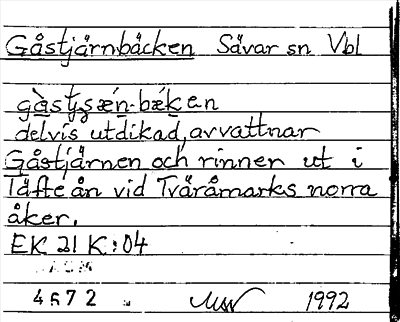 Gåstjärnbäcken Sävar sn Vbl
delvis utdikad, avvattnar
Gåstjärnen och rinner ut i
Täfteån vid Tväråmarks norra
åker.
EK 21 K:04
4672 1992